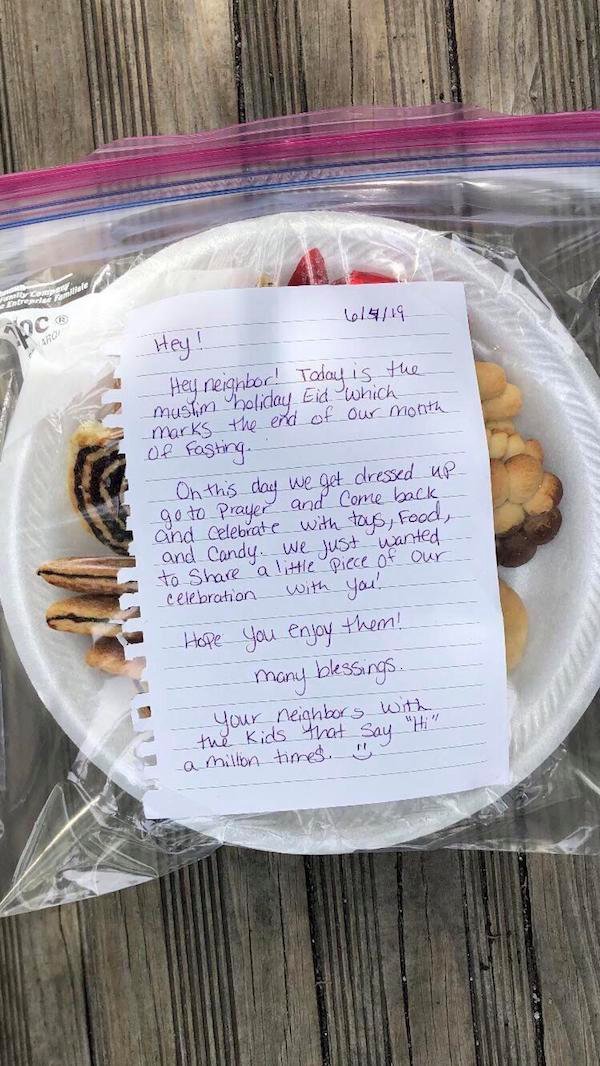 6/4/19
Hey!
Hey neighbor! Today is the
muslim holiday Eid which
marks the end of our month
of Fasting.
On this day we get dressed up
go to Prayer and Come back
and celebrate with toys, Food,
and Candy. We just wanted
to Share a little piece of our
celebration with you!
Hope you enjoy them!
many blessings.
Your neighbors with
the Kids that Say "Hi"
a million times.
Family Company
Entreprise Familiale